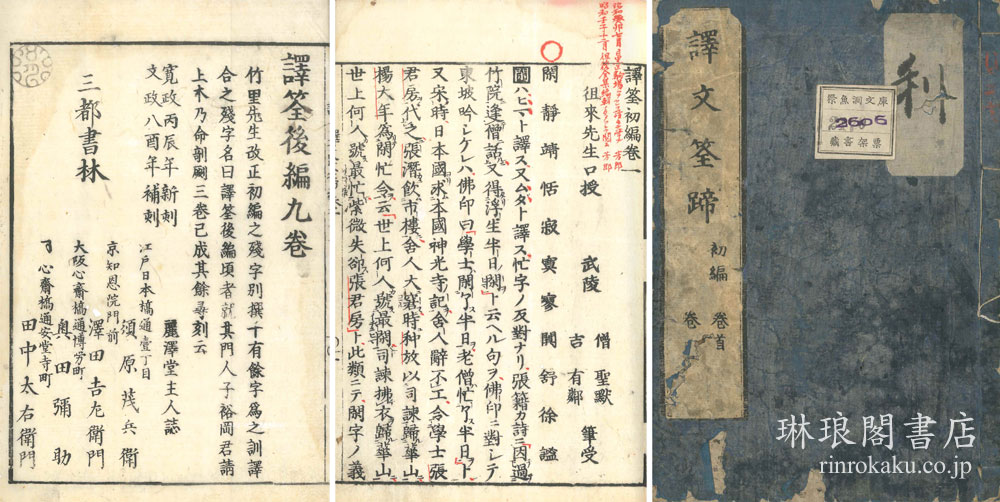 譯筌後編九卷
竹里先生改正初編之殘字別撰千有餘字爲之訓譯
合之殘字名曰譯筌後編頃者就其門人子裕岡君請
上木乃命剞劂三卷已成其餘尋刻云
麗澤堂主人誌
寬政丙辰年新刻
文政八酉年補刻
三都書林
江戸日本橋通壹丁目
須原茂兵衛
京知恩院門前
澤田吉左衛門
大阪心齋橋通博労町
奥田彌助
心齋橋通安堂寺町
田中太右衛門
譯筌初編卷一
徂來先生口授
武陵
僧聖默
吉有鄰
筆受
閑靜靖恬寂寞寥閴舒徐謐
閑ハヒマト譯ス又ムダト譯ス忙字ノ反對ナリ張籍カ詩ニ因過
竹院逢僧話又得浮生半日閑ト云ヘル句ヲ佛印ニ對シテ
東坡吟シケレハ佛印曰學士閑了半日老僧忙了半日ト
又宋時日本國求本國神光寺記舍人辭不工令學士張
君房代之張潛飲市樓舍人大窘時种放以司諫歸華山
楊大年爲閑忙令云世上何人號最閑司諫拂衣歸華山
世上何人號最忙紫微失卻張君房ト此類ニテ閑字ノ義
譯文筌蹄
初編
卷首
卷一
利
2606
藏書架票
琳琅閣書店
rinrokaku.co.jp